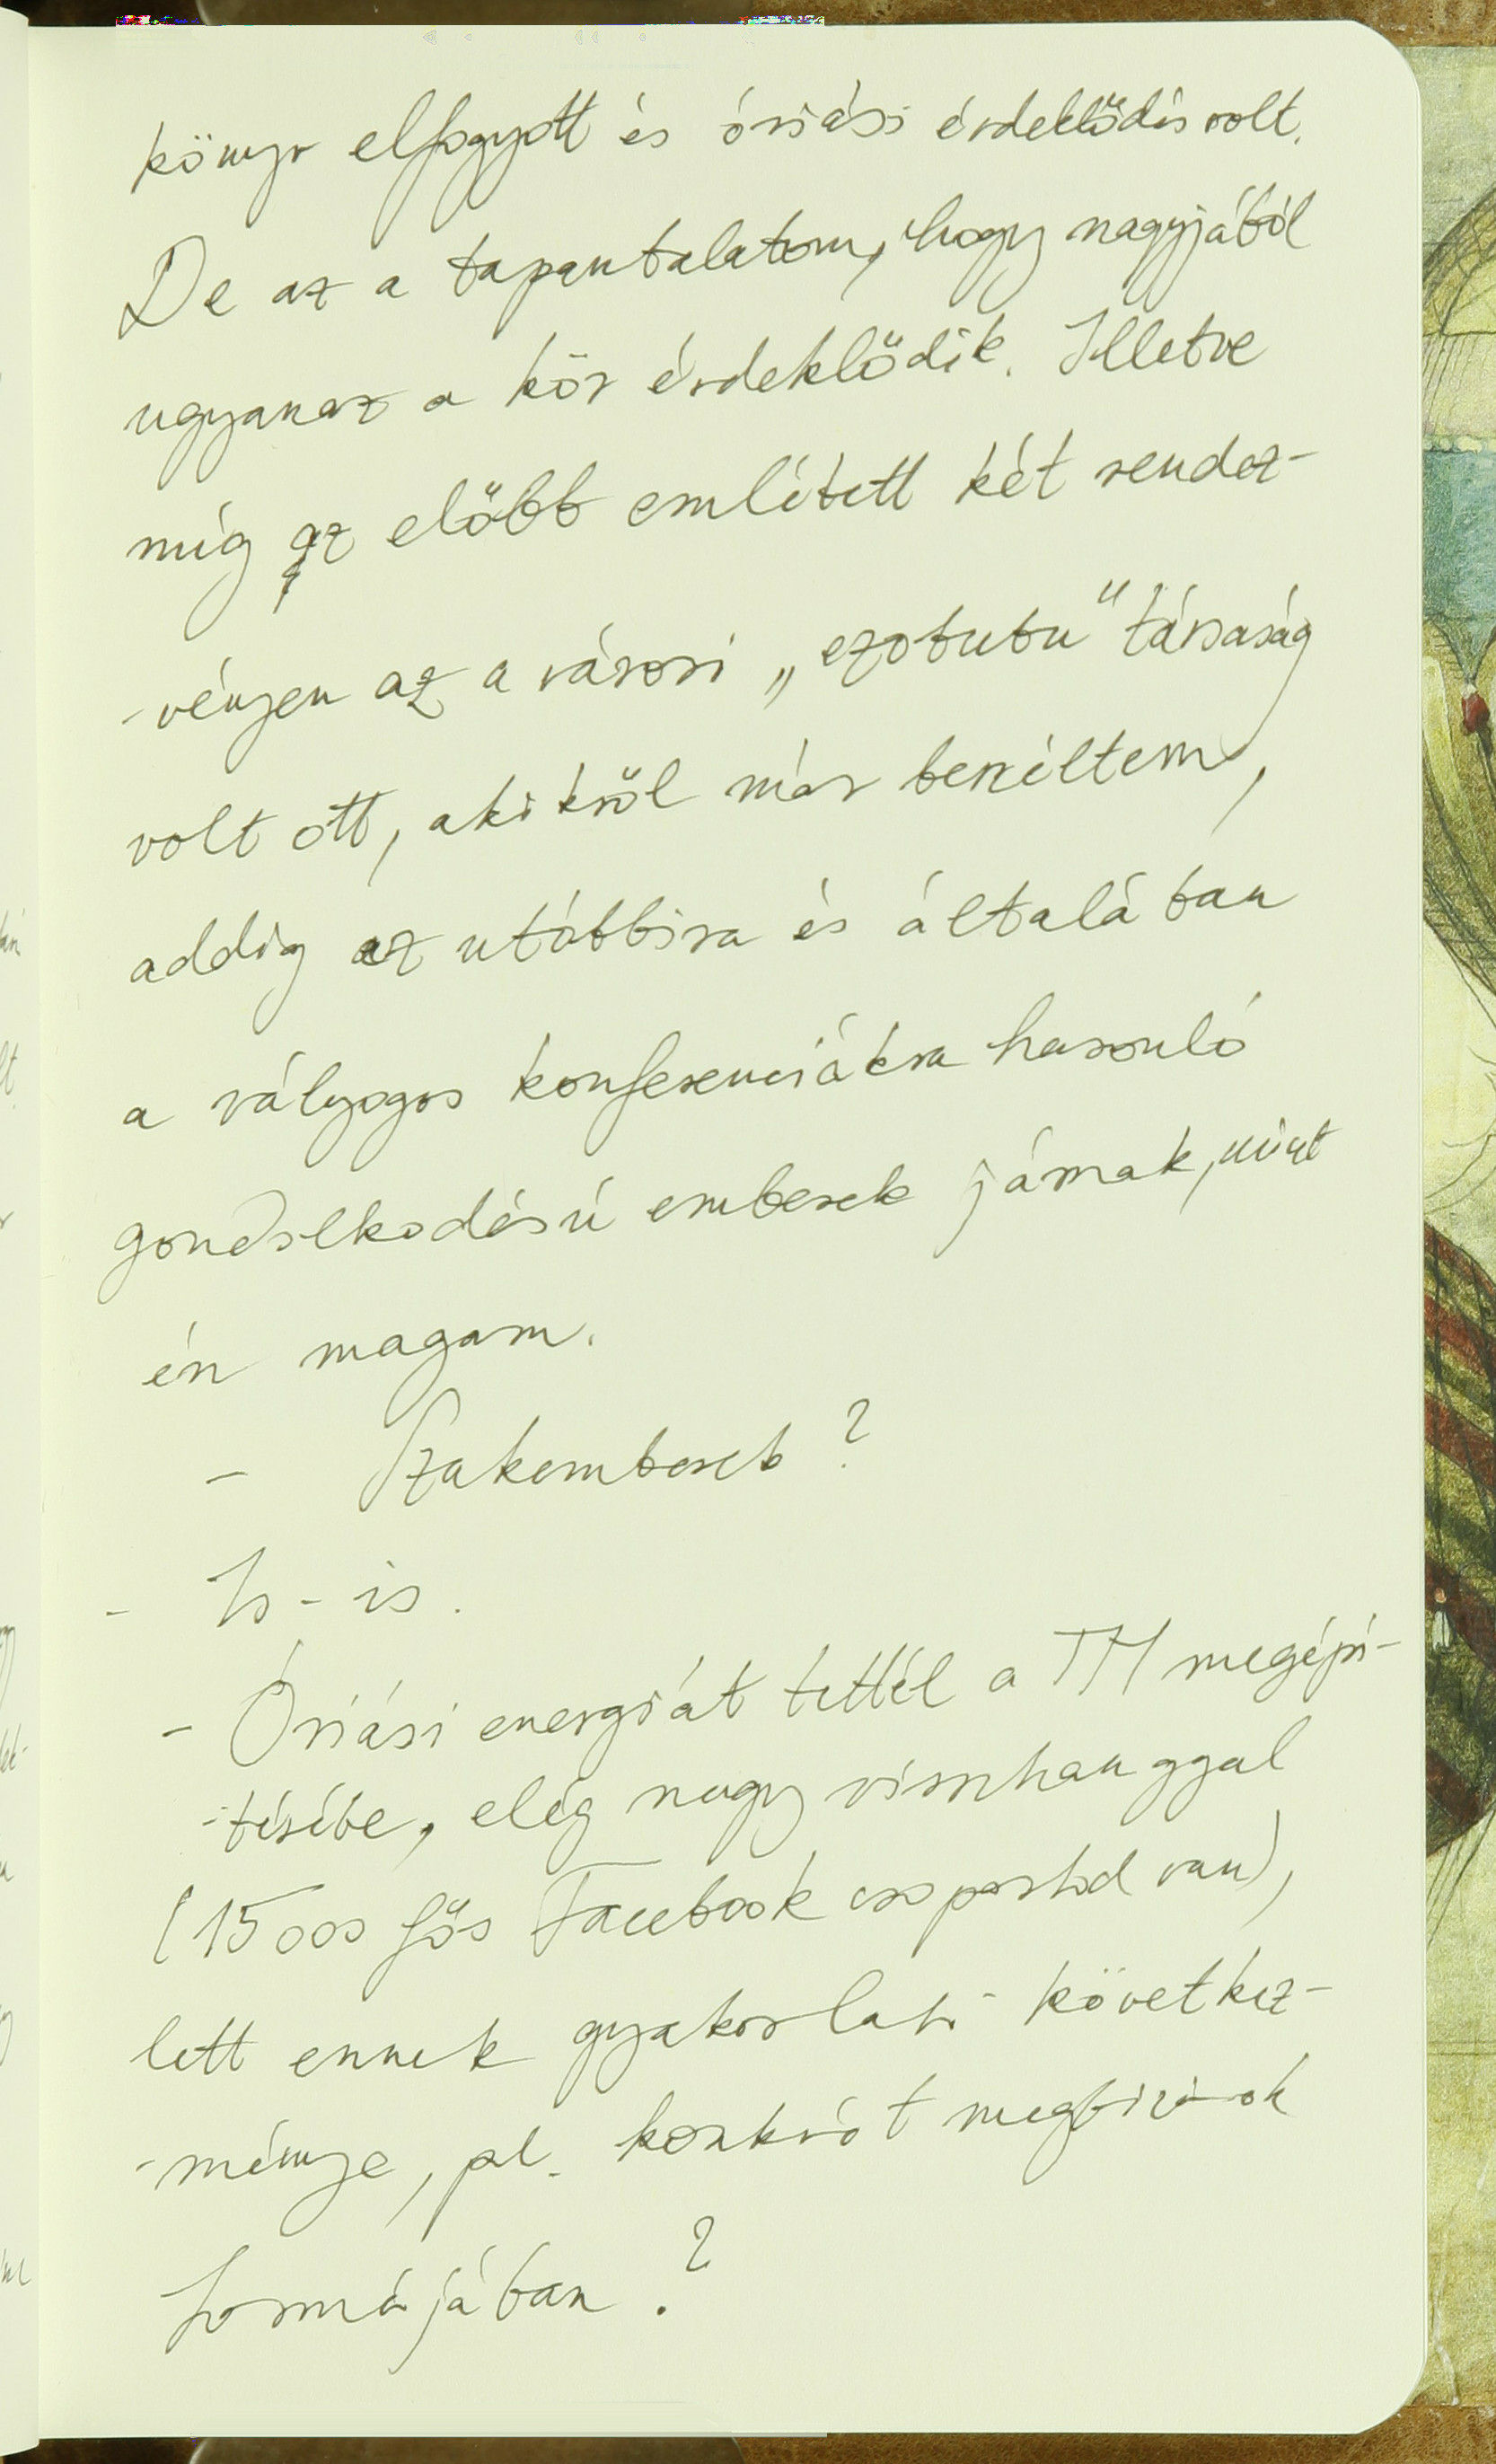 könyv elfogyott és óriási érdeklődés volt.
De az a tapasztalatom, hogy nagyjából
ugyanaz a kör érdeklődik. Illetve
míg az előbb említett két rendez-
-vényen az a városi „ezotutu" társaság
volt ott, akikről már beszéltem,
addig az utóbbira és általában
a vályogos konferenciákra hasonló
gondolkodású emberek járnak, mint
én magam.
- Szakemberek?
- Is-is.
- Óriási energiát tettél a TM megépí-
-tésébe, elég nagy visszhanggal
(15000 fős Facebook csoportod van),
lett ennek gyakorlati következ-
-ménye, pl. konkrét megbízások
formájában?